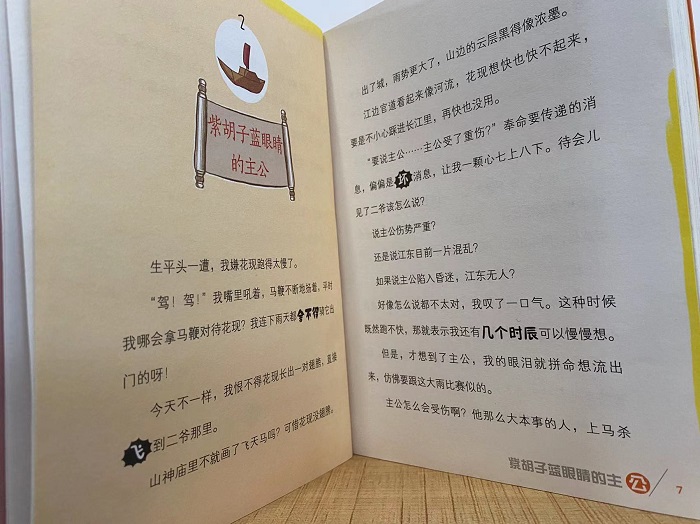 2
紫胡子蓝眼睛
的主公
生平头一遭，我嫌花现跑得太慢了。
“驾！驾！”我嘴里吼着，马鞭不断地扬着，平时
我哪会拿马鞭对待花现？我连下雨天都舍不得骑它出
门的呀！
今天不一样，我恨不得花现长出一对翅膀，直接
飞到二爷那里。
山神庙里不就画了飞天马吗？可惜花现没翅膀。
出了城，雨势更大了，山边的云层黑得像浓墨。
江边官道看起来像河流，花现想快也快不起来，
要是不小心踩进长江里，再快也没用。
“要说主公……主公受了重伤？”奉命要传递的消
息，偏偏是坏消息，让我一颗心七上八下。待会儿
见了二爷该怎么说？
说主公伤势严重？
还是说江东目前一片混乱？
如果说主公陷入昏迷，江东无人？
好像怎么说都不太对，我叹了一口气。这种时候
既然跑不快，那就表示我还有几个时辰可以慢慢想。
但是，才想到了主公，我的眼泪就拼命想流出
来，仿佛要跟这大雨比赛似的。
主公怎么会受伤啊？他那么大本事的人，上马杀
紫胡子蓝眼睛的主公
7